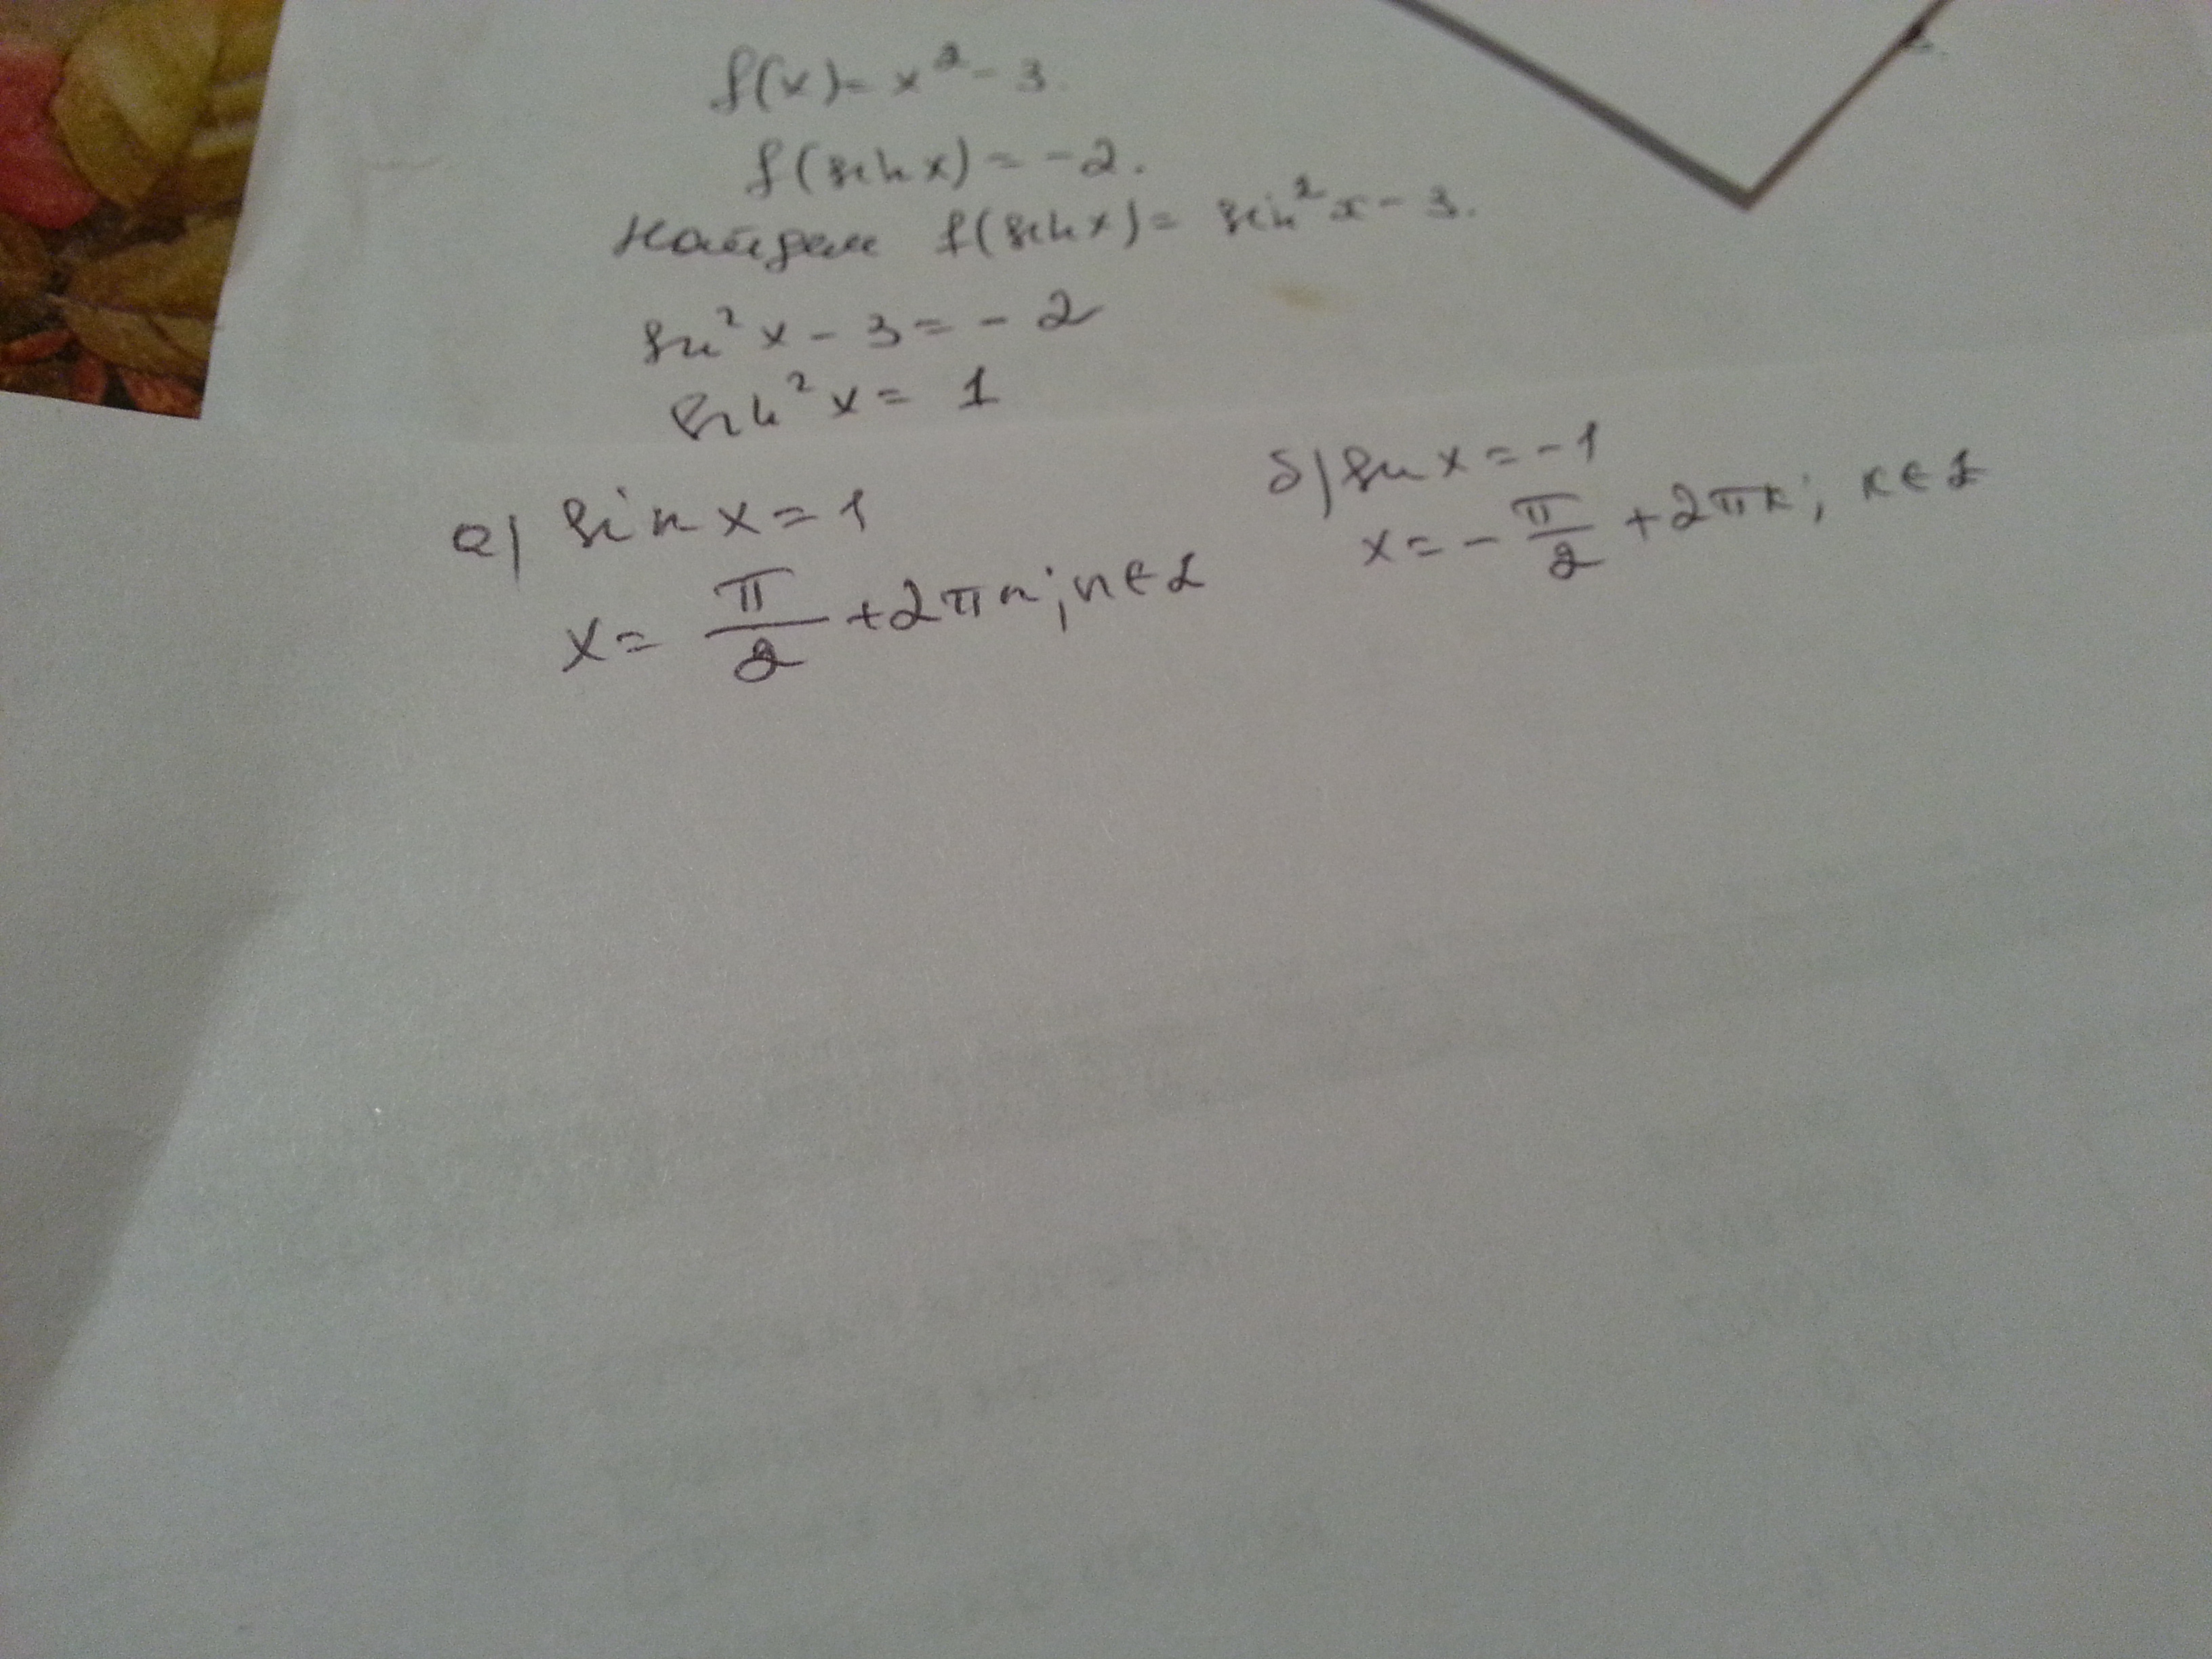 f(x) = x² - 3.
f(sin x) = -2.
Найдем f(sin x) = sin² x - 3.
sin² x - 3 = -2
sin² x = 1
а) sin x = 1
x = π/2 + 2πn; n ∈ Z
б) sin x = -1
x = - π/2 + 2πк; к ∈ Z